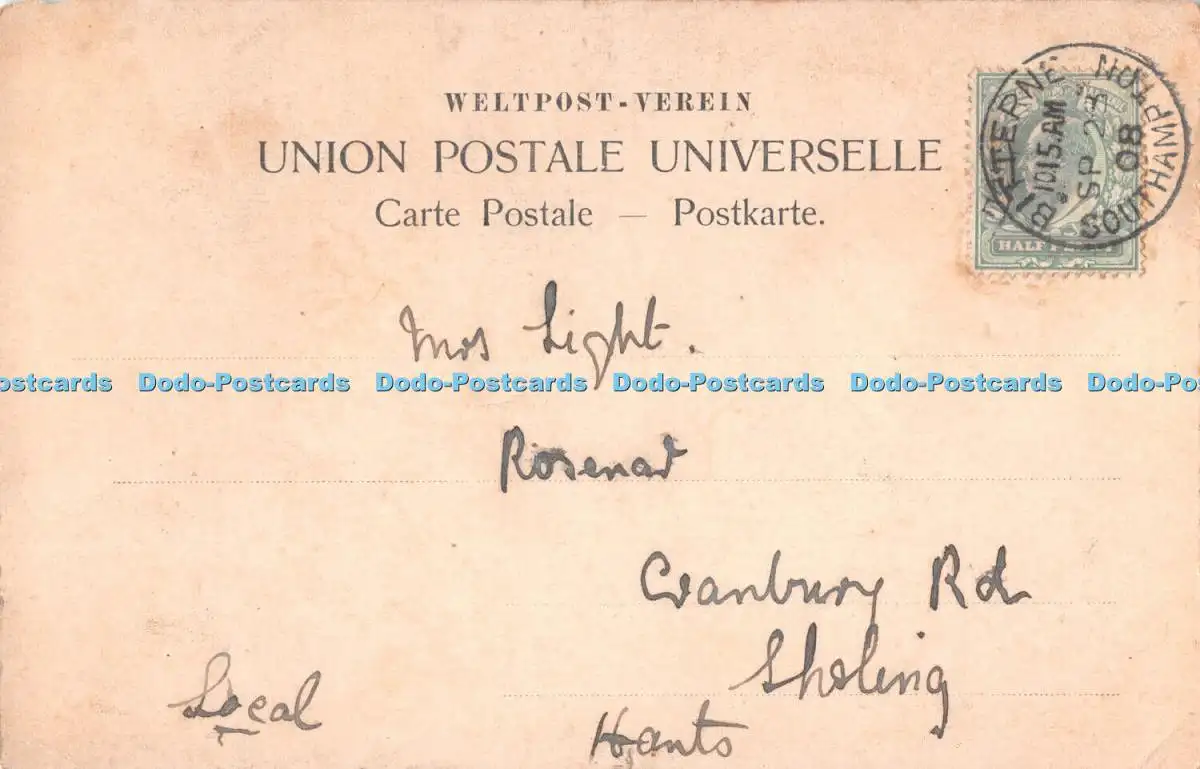 WELTPOST-VEREIN
UNION POSTALE UNIVERSELLE
Carte Postale — Postkarte.
BITTERNE SOUTHAMPTON
10 15 AM
SP 23
08
HALFPENNY
Mrs Light.
Dodo-Postcards Dodo-Postcards Dodo-Postcards Dodo-Postcards Dodo-Postcards
Cranbury Rd
Sholing
Local
Hants